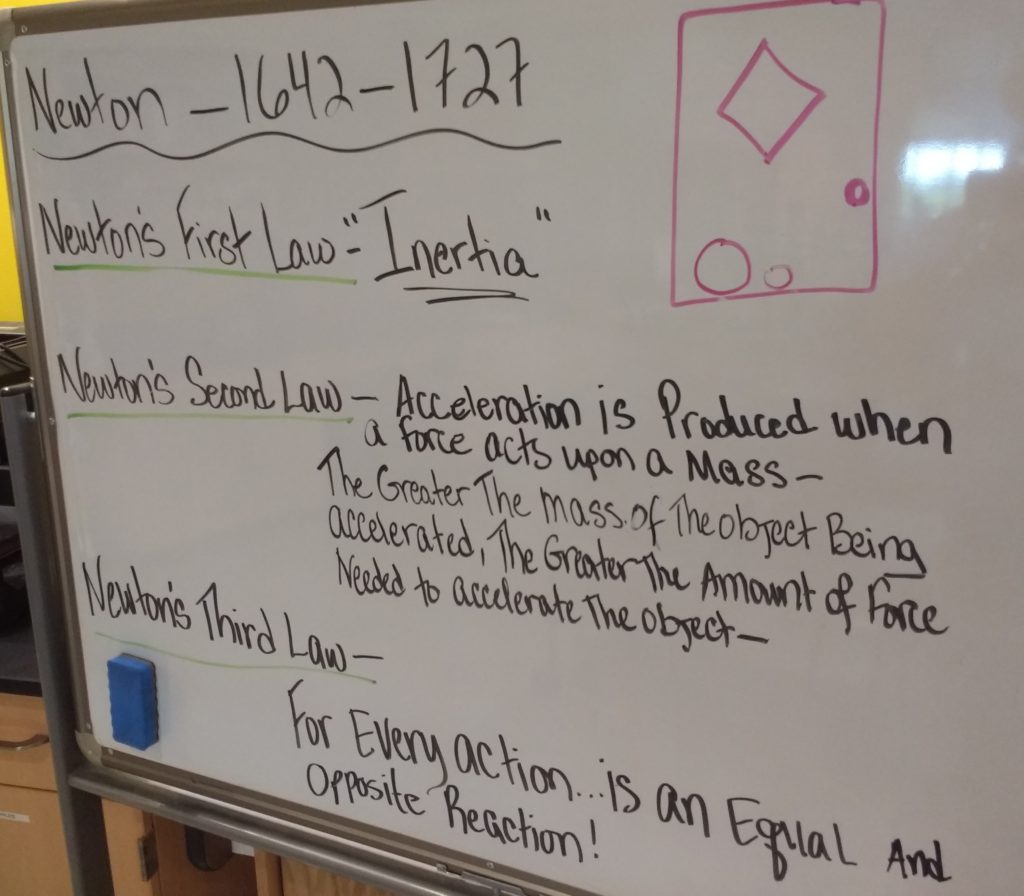 Newton – 1642 – 1727
Newton's First Law - "Inertia"
Newton's Second Law – Acceleration is Produced when
a force acts upon a Mass –
The Greater The mass of The object Being
accelerated, The Greater The Amount of Force
Needed to accelerate The object –
Newton's Third Law –
For Every action... is an Equal And
Opposite Reaction!